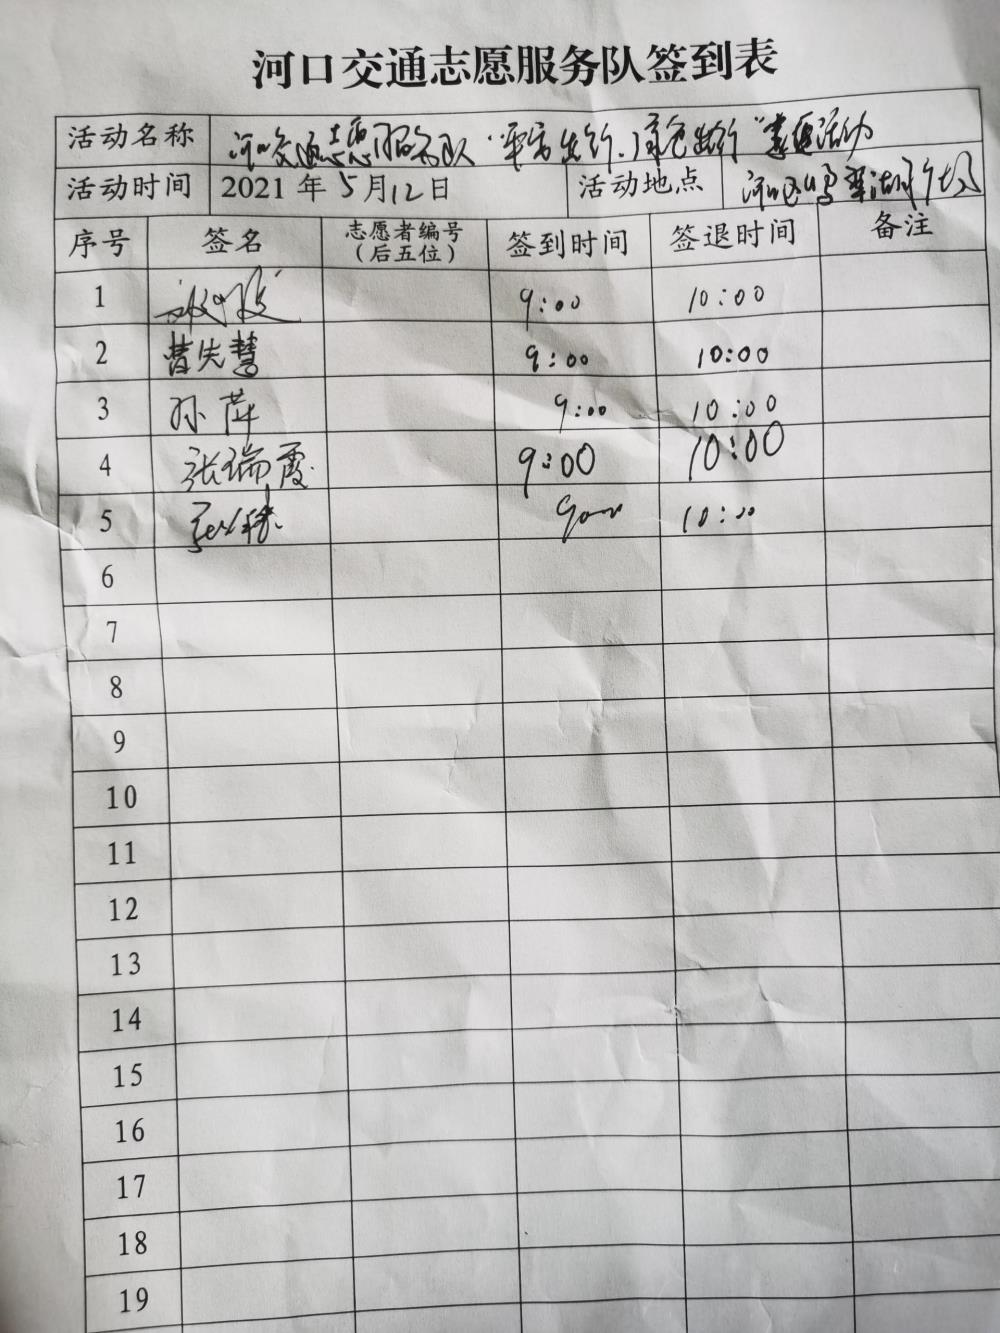 河口交通志愿服务队签到表
活动名称 河口交通志愿服务队"平安出行、绿色出行"志愿活动
活动时间 2021 年 5 月 12 日 活动地点 河口区鸣翠湖广场
序号 签名 志愿者编号（后五位） 签到时间 签退时间 备注
1 9:00 10:00
2 曹先慧 9:00 10:00
3 孙萍 9:00 10:00
4 张瑞霞 9:00 10:00
5 9:00 10:00
6
7
8
9
10
11
12
13
14
15
16
17
18
19